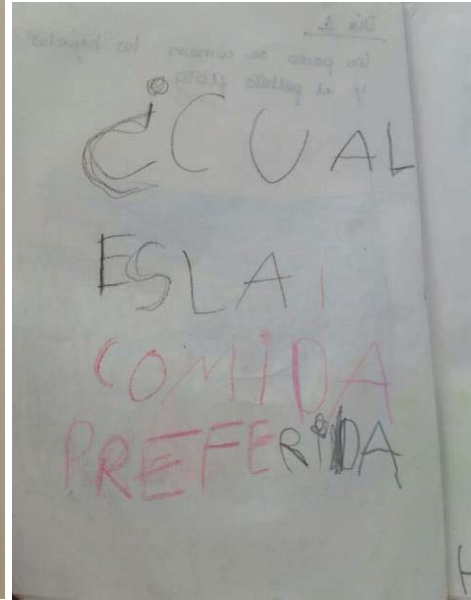 ¿CUAL
ESLA
COMIDA
PREFERIDA